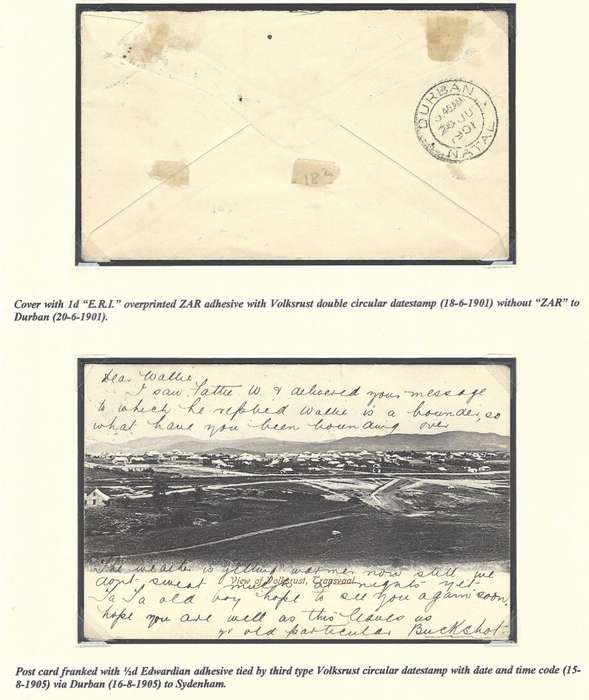 DURBAN
9.45AM
20 JU
1901
NATAL
182
Cover with 1d “E.R.I.” overprinted ZAR adhesive with Volksrust double circular datestamp (18-6-1901) without “ZAR” to
Durban (20-6-1901).
Dear Wallie
I saw Tattie W. & delivered your message
to which he replied Wallie is a bounder, so
what have you been bounding over
The weather is getting warmer now still we
dont sweat much at nights yet
View of Volksrust, Transvaal.
Ta Ta old boy hope to see you again soon.
hope you are well as this leaves us
yr old particular Buckshot
Post card franked with ½d Edwardian adhesive tied by third type Volksrust circular datestamp with date and time code (15-
8-1905) via Durban (16-8-1905) to Sydenham.